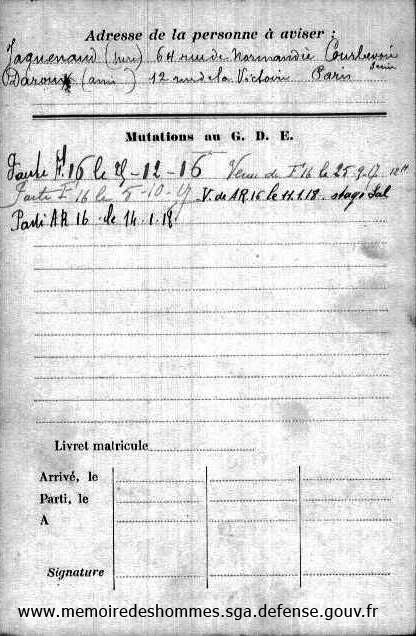 Adresse de la personne à aviser :
Jaguenaud (père) 64 rue de Normandie Courbevoie
Seine
Daroux (ami) 12 rue de la Victoire Paris
Mutations au G. D. E.
16 le 25-12-16 Venu de F 16 le 25.9.17
F 16 le 5-10-17 V. de AR.16 le 11.1.18. stage
Parti AR 16 le 14.1.18.
Livret matricule
Arrivé, le
Parti, le
A
Signature
www.memoiredeshommes.sga.defense.gouv.fr